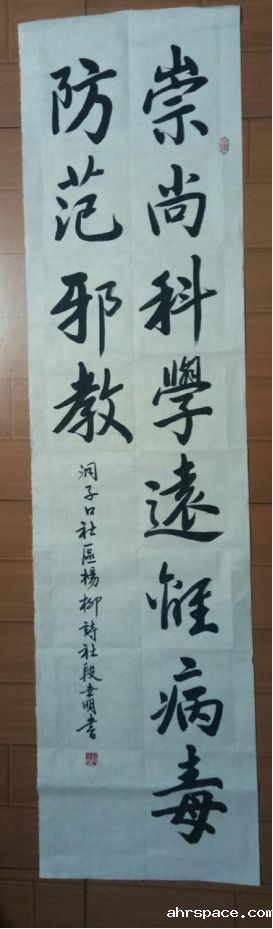 崇尚科學遠離病毒
防范邪教
洞子口社區楊柳詩社段世明書
ahrspace.com